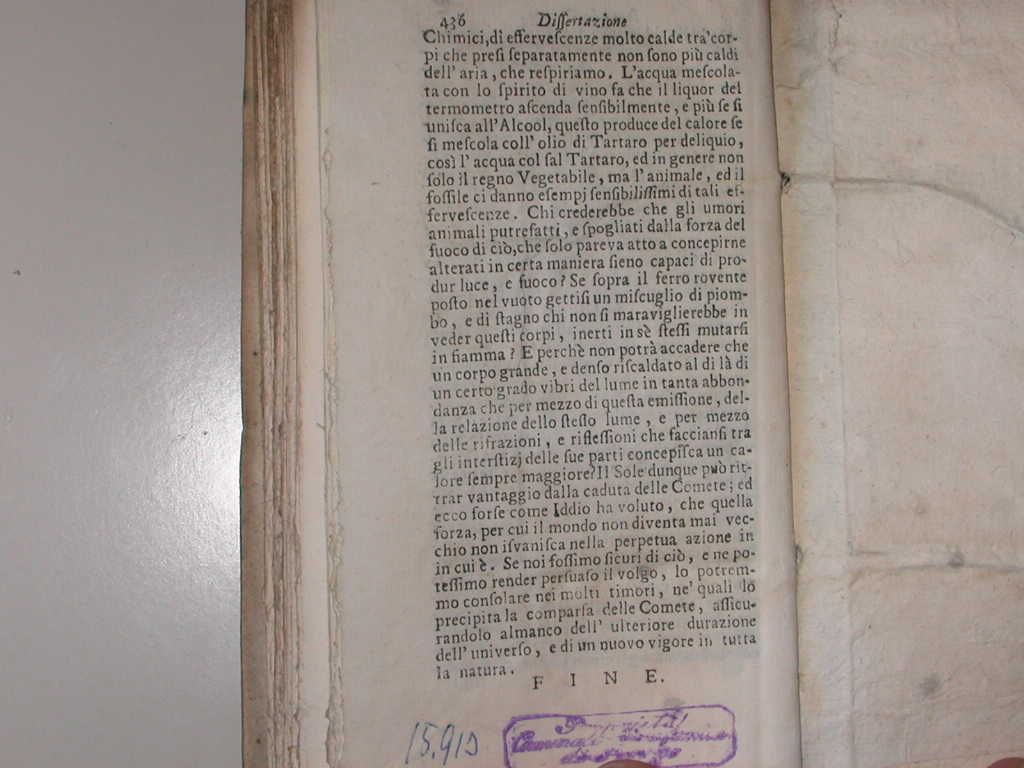 436 Dissertazione
Chimici, di effervescenze molto calde tra' cor-
pi che presi separatamente non sono più caldi
dell' aria, che respiriamo. L'acqua mescola-
ta con lo spirito di vino fa che il liquor del
termometro ascenda sensibilmente, e più se si
unisca all'Alcool, questo produce del calore se
si mescola coll' olio di Tartaro per deliquio,
così l' acqua col sal Tartaro, ed in genere non
solo il regno Vegetabile, ma l' animale, ed il
fossile ci danno esempj sensibilissimi di tali ef-
fervescenze. Chi crederebbe che gli umori
animali putrefatti, e spogliati dalla forza del
fuoco di ciò, che solo pareva atto a concepirne
alterati in certa maniera sieno capaci di pro-
dur luce, e fuoco? Se sopra il ferro rovente
posto nel vuoto gettisi un miscuglio di piom-
bo, e di stagno chi non si maraviglierebbe in
veder questi corpi, inerti in sè stessi mutarsi
in fiamma? E perchè non potrà accadere che
un corpo grande, e denso riscaldato al di là di
un certo grado vibri del lume in tanta abbon-
danza che per mezzo di questa emissione, del-
la relazione dello stesso lume, e per mezzo
delle rifrazioni, e riflessioni che facciansi tra
gli interstizj delle sue parti concepisca un ca-
lore sempre maggiore? Il Sole dunque può rit-
trar vantaggio dalla caduta delle Comete; ed
ecco forse come Iddio ha voluto, che quella
forza, per cui il mondo non diventa mai vec-
chio non isvanisca nella perpetua azione in
in cui è. Se noi fossimo sicuri di ciò, e ne po-
tessimo render persuaso il volgo, lo potrem-
mo consolare nei molti timori, ne' quali lo
precipita la comparsa delle Comete, assicu-
randolo almanco dell' ulteriore durazione
dell' universo, e di un nuovo vigore in tutta
la natura.
F I N E.
15.919